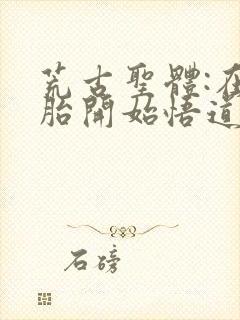 荒古聖體:在
胎開始悟道
石磅